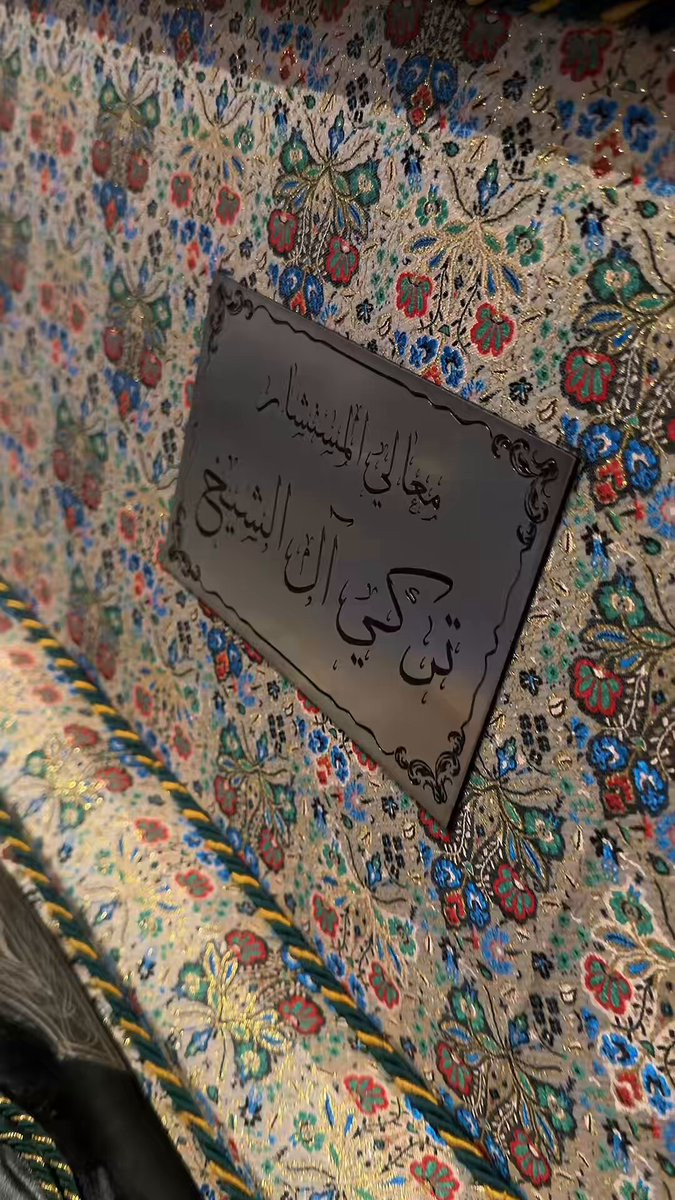 معالي المستشار
تركي آل الشيخ